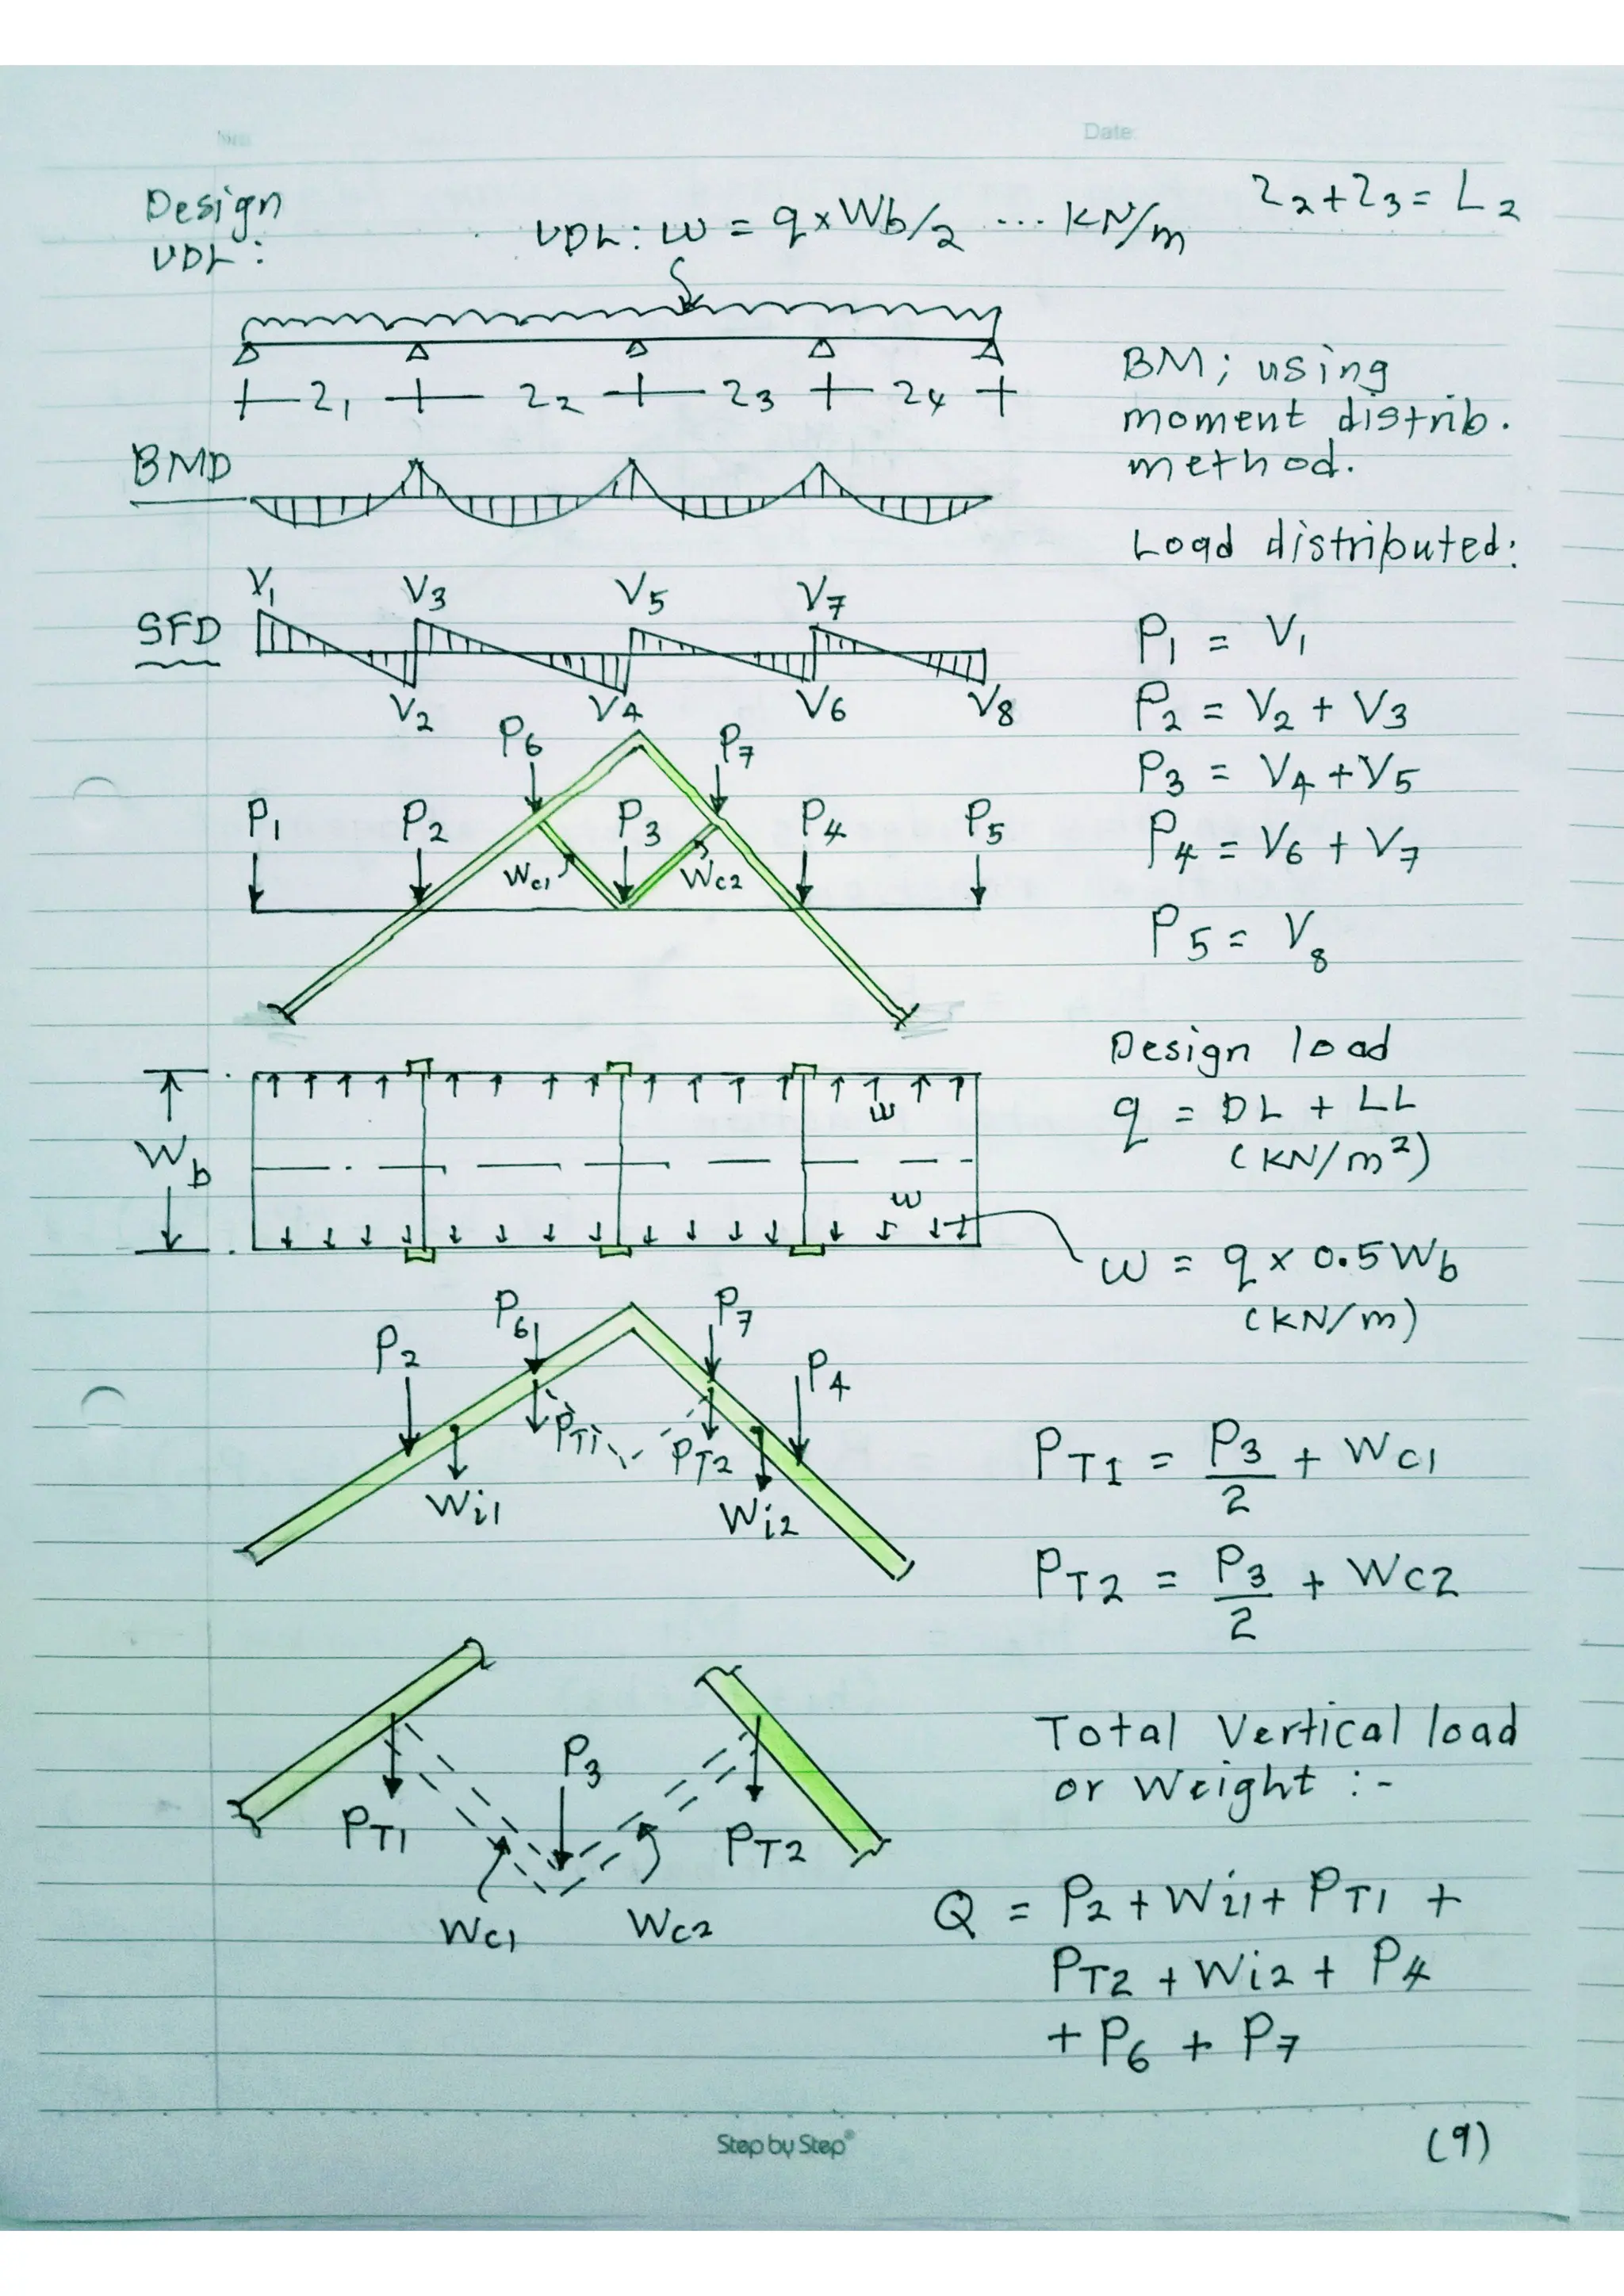 Date:
Design
UDL :
UDL : w = q x Wb/2 ... KN/m
Z2 + Z3 = L2
Z1 Z2 Z3 Z4
BM; using
moment distrib.
method.
BMD
Load distributed:
V1 V3 V5 V7
SFD
V2 V4 V6 V8
P1 = V1
P2 = V2 + V3
P3 = V4 + V5
P4 = V6 + V7
P5 = V8
P6 P7
P1 P2 P3 P4 P5
Wc1 Wc2
Design load
q = DL + LL
(KN/m²)
w
Wb
w
w = q x 0.5 Wb
(KN/m)
P6 P7
P2 P4
PT1 PT2
Wi1 Wi2
PT1 = P3/2 + Wc1
PT2 = P3/2 + Wc2
P3
PT1 PT2
Wc1 Wc2
Total Vertical load
or Weight :-
Q = P2 + Wi1 + PT1 +
PT2 + Wi2 + P4
+ P6 + P7
Step by Step®
(9)